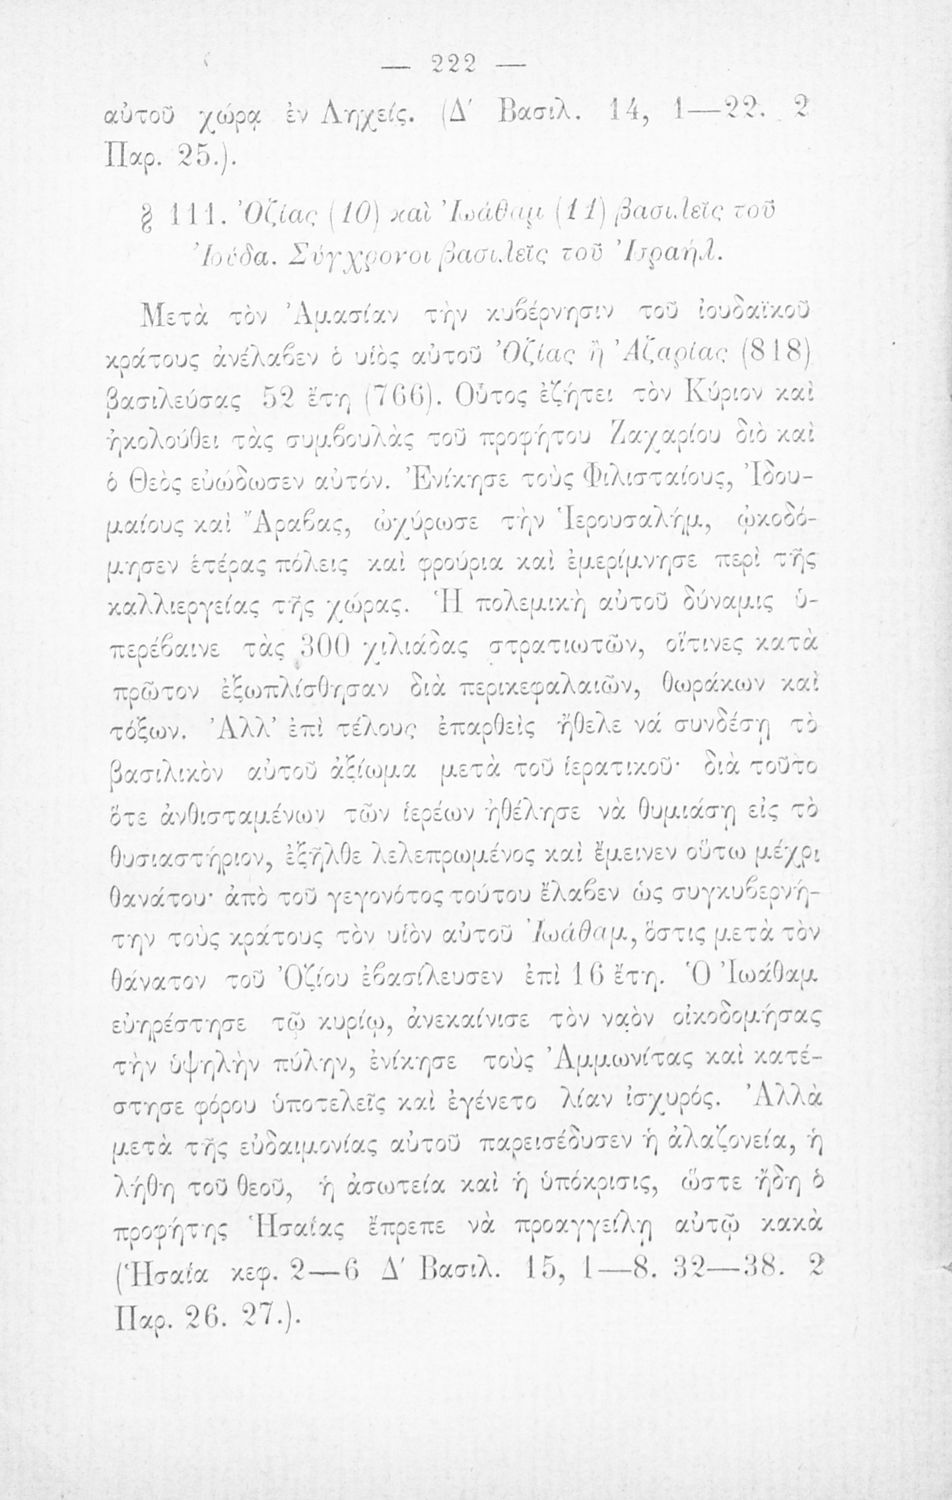 — 222 —
αὐτοῦ χώρᾳ ἐν Ληχείς. (Δ′ Βασιλ. 14, 1—22. 2
Παρ. 25.).
§ 111. Ὀζίας (10) καὶ Ἰωάθαμ (11) βασιλεῖς τοῦ
Ἰούδα. Σύγχρονοι βασιλεῖς τοῦ Ἰσραήλ.
Μετὰ τὸν Ἀμασίαν τὴν κυβέρνησιν τοῦ ἰουδαϊκοῦ
κράτους ἀνέλαβεν ὁ υἱὸς αὐτοῦ Ὀζίας ἢ Ἀζαρίας (818)
βασιλεύσας 52 ἔτη (766). Οὗτος ἐζήτει τὸν Κύριον καὶ
ἠκολούθει τὰς συμβουλὰς τοῦ προφήτου Ζαχαρίου διὸ καὶ
ὁ Θεὸς εὐώδωσεν αὐτόν. Ἐνίκησε τοὺς Φιλισταίους, Ἰδου-
μαίους καὶ Ἄραβας, ὠχύρωσε τὴν Ἱερουσαλήμ, ᾠκοδό-
μησεν ἑτέρας πόλεις καὶ φρούρια καὶ ἐμερίμνησε περὶ τῆς
καλλιεργείας τῆς χώρας. Ἡ πολεμικὴ αὐτοῦ δύναμις ὑ-
περέβαινε τὰς 300 χιλιάδας στρατιωτῶν, οἵτινες κατὰ
πρῶτον ἐξωπλίσθησαν διὰ περικεφαλαιῶν, θωράκων καὶ
τόξων. Ἀλλ’ ἐπὶ τέλους ἐπαρθεὶς ἤθελε νά συνδέσῃ τὸ
βασιλικὸν αὐτοῦ ἀξίωμα μετὰ τοῦ ἱερατικοῦ· διὰ τοῦτο
ὅτε ἀνθισταμένων τῶν ἱερέων ἠθέλησε νὰ θυμιάσῃ εἰς τὸ
θυσιαστήριον, ἐξῆλθε λελεπρωμένος καὶ ἔμεινεν οὕτω μέχρι
θανάτου· ἀπὸ τοῦ γεγονότος τούτου ἔλαβεν ὡς συγκυβερνή-
την τοὺς κράτους τὸν υἱὸν αὐτοῦ Ἰωάθαμ, ὅστις μετὰ τὸν
θάνατον τοῦ Ὀζίου ἐβασίλευσεν ἐπὶ 16 ἔτη. Ὁ Ἰωάθαμ
εὐηρέστησε τῷ κυρίῳ, ἀνεκαίνισε τὸν ναὸν οἰκοδομήσας
τὴν ὑψηλὴν πύλην, ἐνίκησε τοὺς Ἀμμωνίτας καὶ κατέ-
στησε φόρου ὑποτελεῖς καὶ ἐγένετο λίαν ἰσχυρός. Ἀλλὰ
μετὰ τῆς εὐδαιμονίας αὐτοῦ παρεισέδυσεν ἡ ἀλαζονεία, ἡ
λήθη τοῦ θεοῦ, ἡ ἀσωτεία καὶ ἡ ὑπόκρισις, ὥστε ἤδη ὁ
προφήτης Ἡσαίας ἔπρεπε νὰ προαγγείλῃ αὐτῷ κακὰ
(Ἡσαία κεφ. 2—6 Δ′ Βασιλ. 15, 1—8. 32—38. 2
Παρ. 26. 27.).